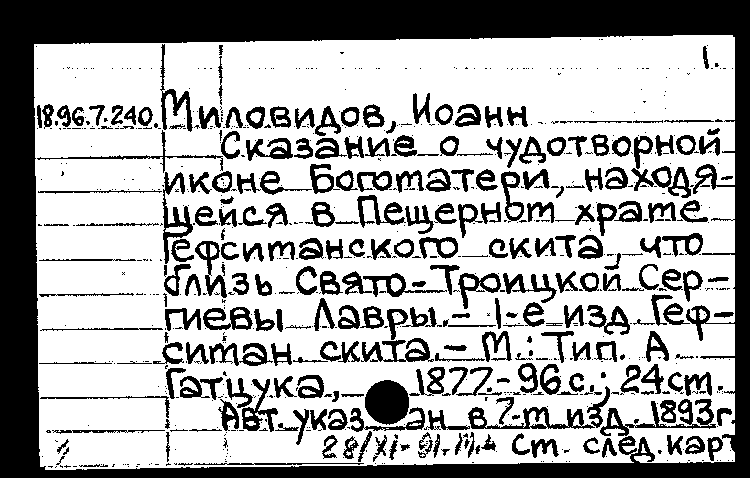 1.
18.96.7.240. Миловидов, Иоанн
Сказание о чудотворной
иконе Богоматери, находя-
щейся в Пещерном храме
Гефситанского скита, что
близь Свято-Троицкой Сер-
гиевы Лавры.- 1-е изд. Геф-
ситан. скита.- М.: Тип. А.
Гатцука, 1877.- 96 с.; 24 см.
Авт. указ ан в 7-м изд. 1893г.
28/XI- 91. См. след. карт